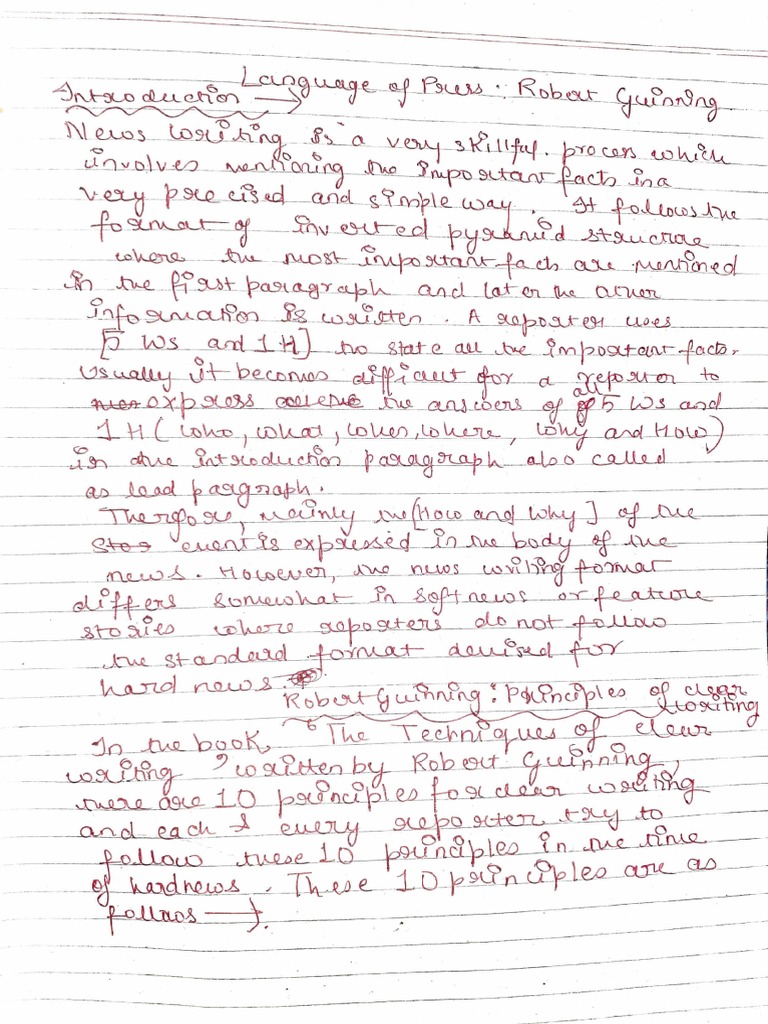 Language of Press : Robert Guinning
Introduction →
News writing is a very skillful process which
involves mentioning the important facts in a
very precised and simple way. It follows the
format of inverted pyramid structure
where the most important facts are mentioned
in the first paragraph and later the other
information is written. A reporter uses
[5 Ws and 1 H] to state all the important facts.
Usually it becomes difficult for a reporter to
express the answers of all 5 Ws and
1 H (who, what, when, where, why and How)
in the introduction paragraph also called
as lead paragraph.
Therefore, mainly the [How and Why] of the
event is expressed in the body of the
news. However, the news writing format
differs somewhat in soft news or feature
stories where reporters do not follow
the standard format devised for
hard news.
Robert Guinning : Principles of clear
writing
In the book, "The Techniques of clear
writing" written by Robert Guinning,
there are 10 principles for clear writing
and each & every reporter try to
follow these 10 principles in the time
of hardnews. These 10 principles are as
follows →